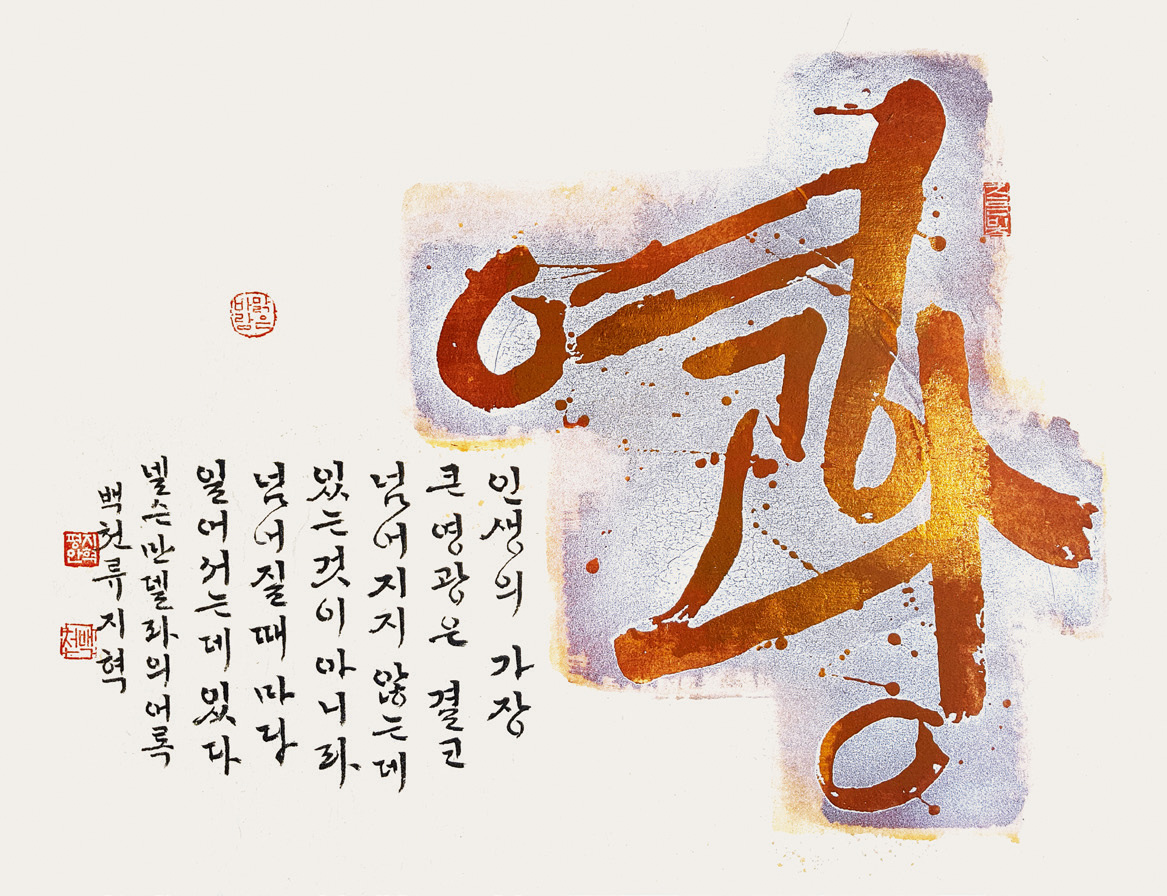 영광
인생의 가장
큰 영광은 결코
넘어지지 않는데
있는것이 아니라
넘어질때 마다
일어서는데 있다
넬슨만델라의 어록
백천 류지혁
맑은
바람
백천